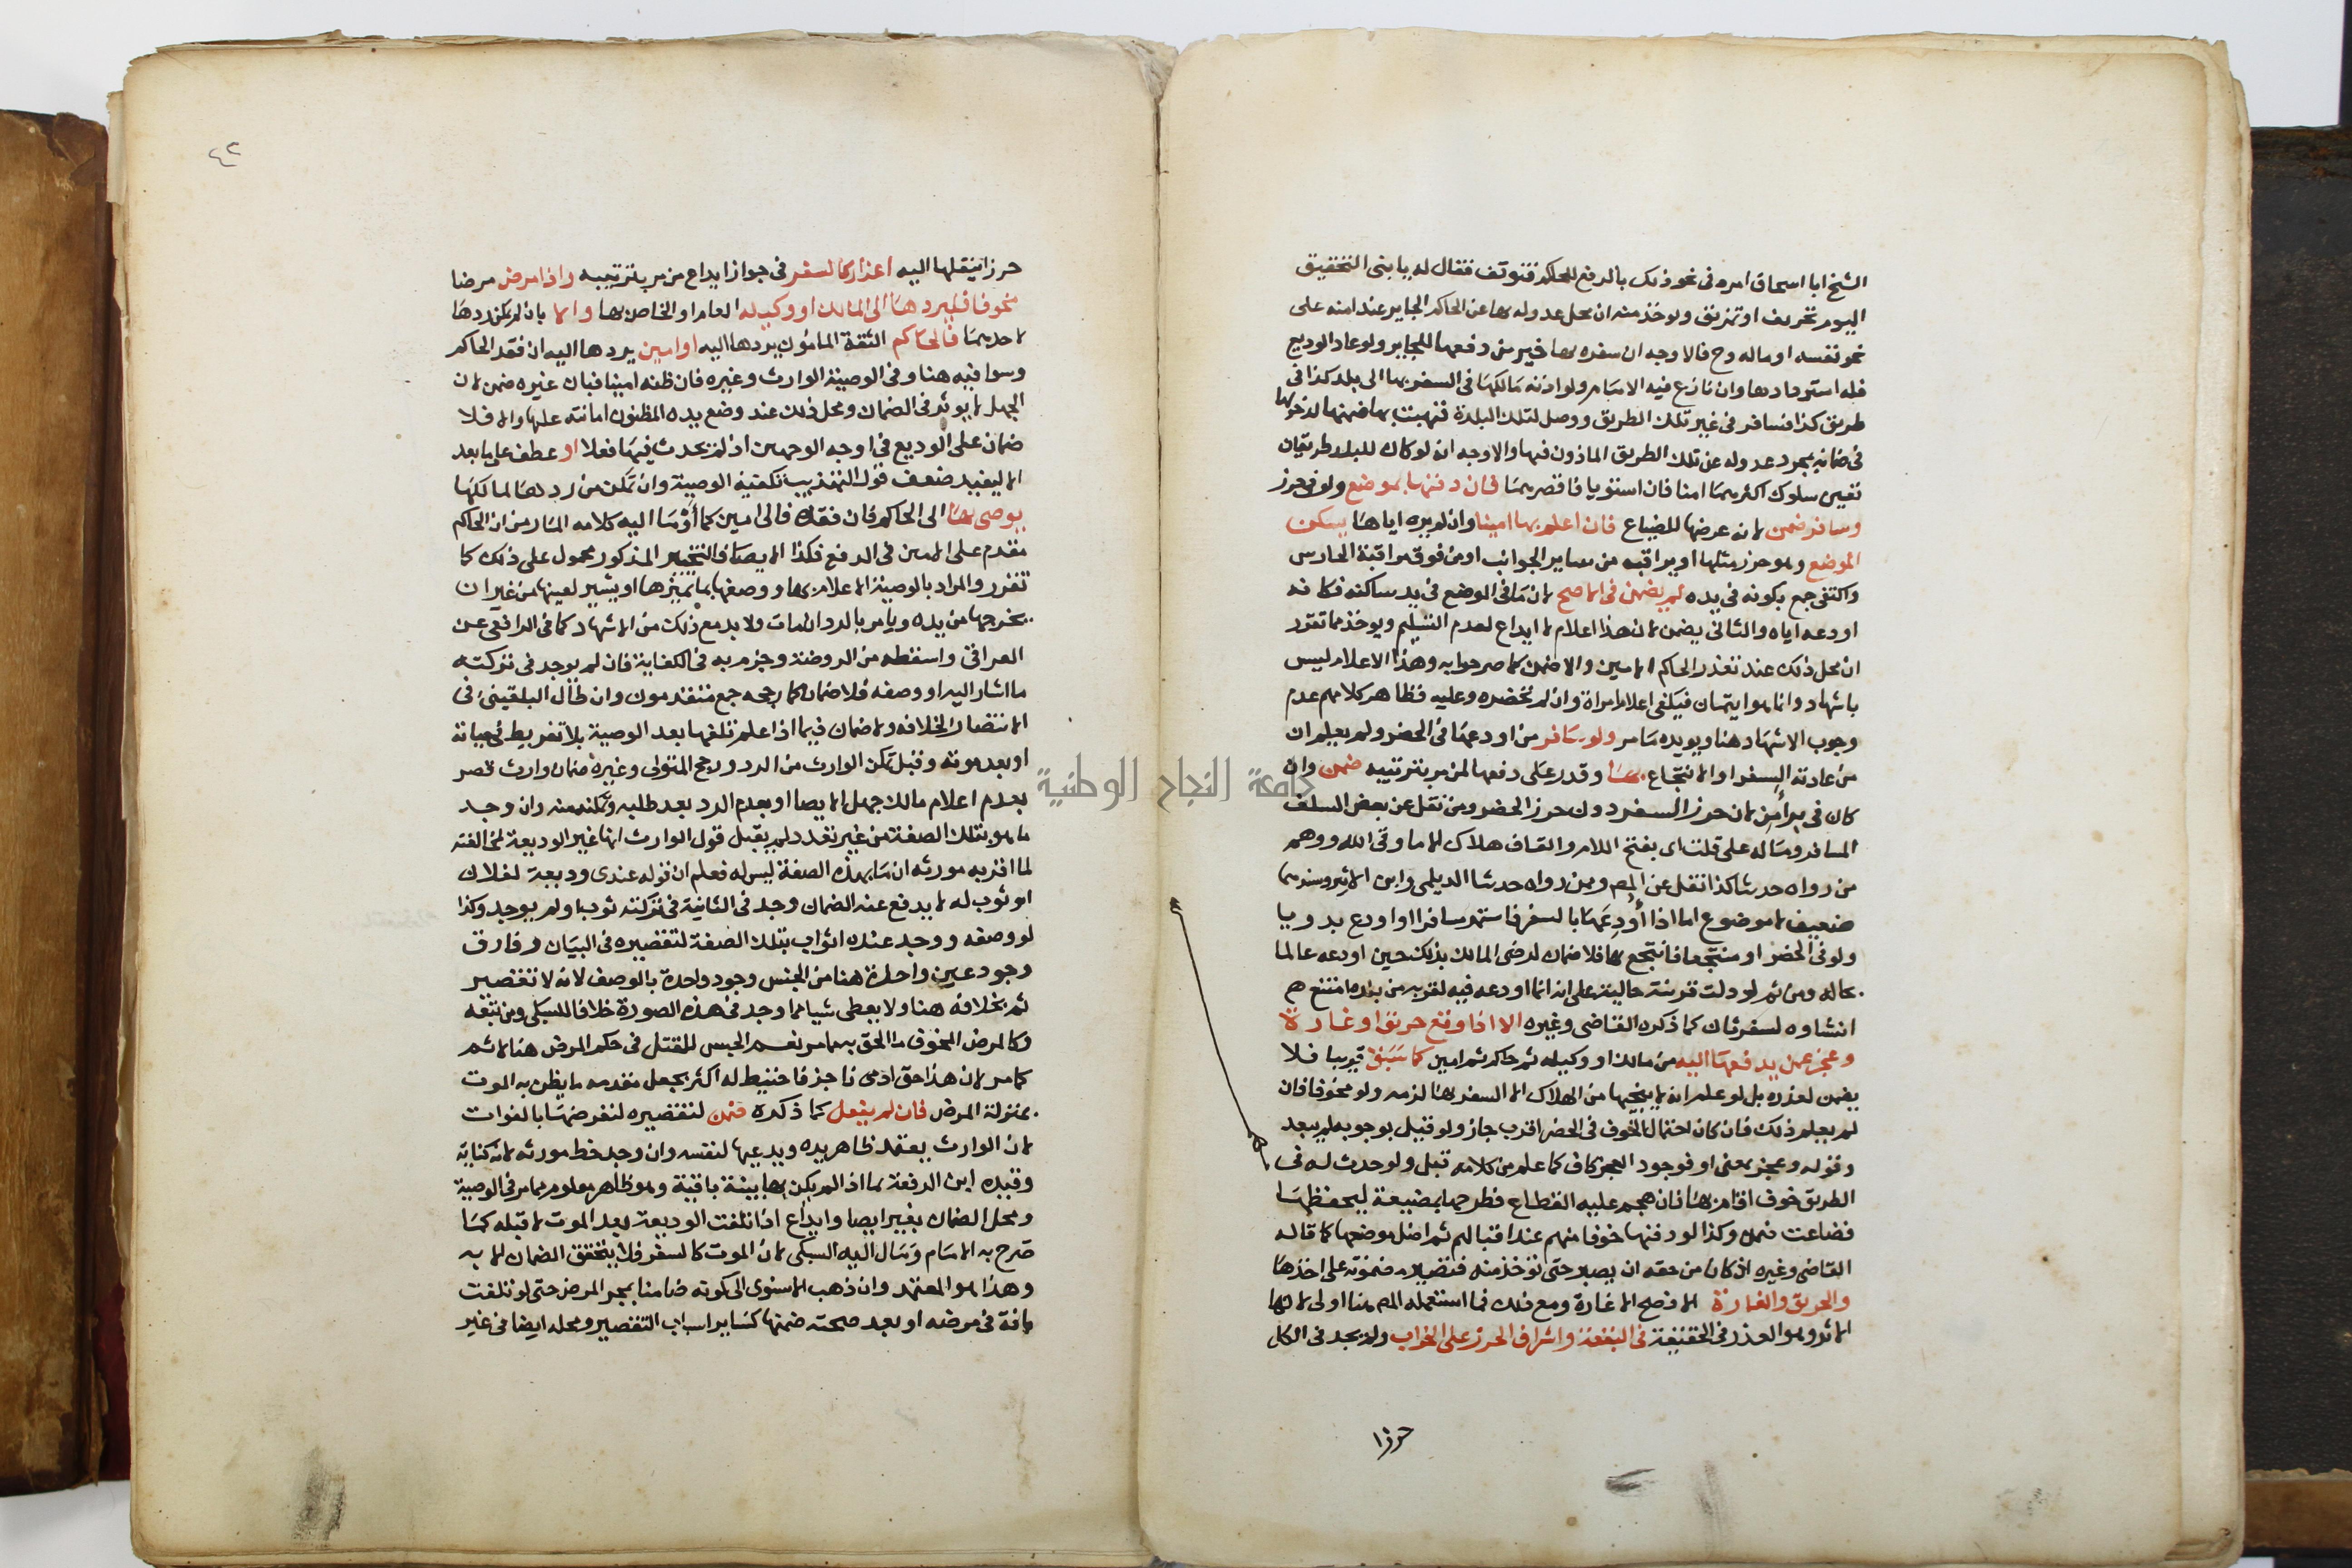 الشيخ ابا اسحاق امره فى نحو ذلك بالدفع للحاكم فتوقف فقال له يا بنى التحقيق
اليوم تخريف او تمزيق ويوخذ منه ان محل عدوله بها عن الحاكم الجاير عند امنه على
نحو نفسه او ماله وح فالاوجه ان سفره بها خير من دفعها للجاير ولو عاد الوديع
فله استردادها وان نازع فيه الامام ولو اذنه مالكها فى السفر بها الى بلد كذا فى
طريق كذا فسافر فى غير تلك الطريق ووصل لتلك البلدة فنهبت بها ضمنها لدخولها
فى ضمانه بمجرد عدوله عن تلك الطريق الماذون فيها والاوجه انه لو كان للبلد طريقان
تعين سلوك اكثرهما امنا فان استويا فاقصرهما فان دفنها بموضع ولو فى حرز
وسافر ضمن لانه عرضها للضياع فان اعلم بها امينا وان لم يره اياها يسكن
الموضع وهو حرز مثلها او يراقبه من ساير الجوانب او من فوق مراقبة الحارس
واكتفى جمع بكونه فى يده لم يضمن فى الاصح لان ما فى الموضع فى يد ساكنه فكانه
اودعه اياه والثانى يضمن لان هذا اعلام لا ايداع لعدم التسليم ويوخذ مما تقرر
ان محل ذلك عند تعذر الحاكم الامين والا ضمن كما صرحوا به وهذا الاعلام ليس
باشهاد وانما هو ايتمان فيكفى اعلام امراة وان لم تحضره وعليه فظاهر كلامهم عدم
وجوب الاشهاد هنا ويويده ما مر ولو سافر من اودعها فى الحضر ولم يعلم ان
من عادته السفر او الانتجاع بها وقدر على دفعها لمن مر بترتيبه ضمن وان
كان فى بر امن لان حرز السفر دون حرز الحضر ومن نقل عن بعض السلف
المسافر وماله على قلت اى بفتح اللام والقاف هلاك الا ما وقى الله ووهم
من رواه حديثا كذا نقل عن المص وممن رواه حديثا الديلمى وابن الاثير وسندهما
ضعيف لا موضوع اما اذا أُودِعَها بالسفر فاستمر مسافرا او اودع بدويا
ولو فى الحضر او منتجعا فانتجع بها فلا ضمان لرضى المالك بذلك حين اودعه عالما
بحاله ومن ثم لو دلت قرينة حالية على انه انما اودعه فيه لقربه من بلده امتنع ح
انشاوه لسفر ثان كما ذكره القاضى وغيره الا اذا وقع حريق او غارة
وعجز عمن يدفعها اليه من مالك او وكيله ثم حاكم ثم امين كما سَبَقَ قريبا فلا
يضمن لعذره بل لو علم انه لا ينجيها من الهلاك الا السفر بها لزمه ولو مخوفا فان
لم يعلم ذلك فان كان احتمال الخوف فى الحضر اقرب جاز ولو قيل بوجوبه لم يبعد
وقوله وعجز بمعنى او فوجود العجز كاف كما علم من كلامه قبل ولو حدث له فى
الطريق خوف اقام بها فان هجم عليه القطاع فطرحها بمضيعة ليحفظها
فضاعت ضمن وكذا لو دفنها خوفا منهم عند اقبالهم ثم اضل موضعها كما قاله
القاضى وغيره اذ كان من حقه ان يصبر حتى توخذ منه فتصير مضمونة على اخذها
والحريق والغارة الافصح الاغارة ومع ذلك فما استعمله المص هنا اولى لانها
الاثر وهو العذر فى الحقيقة فى البقعة واشراف الحرز على الخراب ولم يجد فى الكل
حرزا
٤٢
حرزا ينقلها اليه اعذار كالسفر فى جواز ايداع من مر بترتيبه واذا مرض مرضا
مخوفا فليردها الى المالك او وكيله العام او الخاص بها والا بان لم يمكن ردها
لاحدهما فالحاكم الثقة المامون يردها اليه او امين يردها اليه ان فقد الحاكم
وسوا فيه هنا وفى الوصية الوارث وغيره فان ظنه امينا فبان غيره ضمن لان
الجهل لا يوثر فى الضمان ومحل ذلك عند وضع يده المظنون امانته عليها والا فلا
ضمان على الوديع فى اوجه الوجهين اذ لم يحدث فيها فعلا او عطف على ما بعد
الا ليفيد ضعف قول التهذيب تكفيه الوصية وان تمكن من ردها لمالكها
يوصى بها الى الحاكم فان فقد فالى امين كما أوما اليه كلامه المار من ان الحاكم
مقدم على الامين فى الدفع فكذا الايصا فالتخيير المذكور محمول على ذلك كما
تقرر والمراد بالوصية الاعلام بها ووصفها بما يميزها او يشير لعينها من غير ان
يخرجها من يده ويامر بالرد ان مات ولا بد مع ذلك من الاشهاد كما فى الرافعى عن
العراقى واسقطه من الروضة وجزم به فى الكفاية فان لم يوجد فى تركته
ما اشار اليه او وصفه فلا ضمان كما رجحه جمع متقدمون وان طال البلقينى فى
الانتصار لخلافه ولا ضمان فيما اذا علم تلفها بعد الوصية بلا تفريط فى حياته
او بعد موته وقبل تمكن الوارث من الرد ورجح المتولى وغيره ضمان وارث قصر
بعدم اعلام مالك جهل الايصا او بعدم الرد بعد طلبه وتمكنه منه وان وجد
ما هو بتلك الصفة من غير تعدد لم يقبل قول الوارث انها غير الوديعة لمخالفته
لما اقر به مورثه ان ما بهذه الصفة ليس له فعلم ان قوله عندى وديعة لفلان
او ثوب له لا يدفع عنه الضمان وجد فى الثانية فى تركته ثوب او لم يوجد وكذا
لو وصفه ووجد عنده اثواب بتلك الصفة لتقصيره فى البيان وفارق
وجود عين واحدة هنا من الجنس وجود واحدة بالوصف لانه لا تقصير
ثم بخلافه هنا ولا يعطى شيا مما وجد فى هذه الصورة خلافا للسبكى ومن تبعه
وكالمرض المخوف ما الحق به مما مر نعم الحبس للقتل فى حكم المرض هنا لا ثم
كما مر لان هذا حق ادمى ناجز فاحتيط له اكثر بجعل مقدمه ما يظن به الموت
بمنزلة المرض فان لم يفعل كما ذكره ضمن لتقصيره لتعرضها بالفوات
لان الوارث يعتمد ظاهر يده ويدعيها لنفسه وان وجد خط مورثه لانه كناية
وقيده ابن الرفعة بما اذا لم يكن بها بينة باقية وهو ظاهر معلوم مما مر فى الوصية
ومحل الضمان بغير ايصا وايداع اذا تلفت الوديعة بعد الموت لا قبله كما
صرح به الامام ومال اليه السبكى لان الموت كالسفر فلا يتحقق الضمان الا به
وهذا هو المعتمد وان ذهب الاسنوى الى كونه ضامنا بمجرد المرض حتى لو تلفت
بافة فى مرضه او بعد صحته ضمنها كساير اسباب التقصير ومحله ايضا فى غير
جامعة النجاح الوطنية